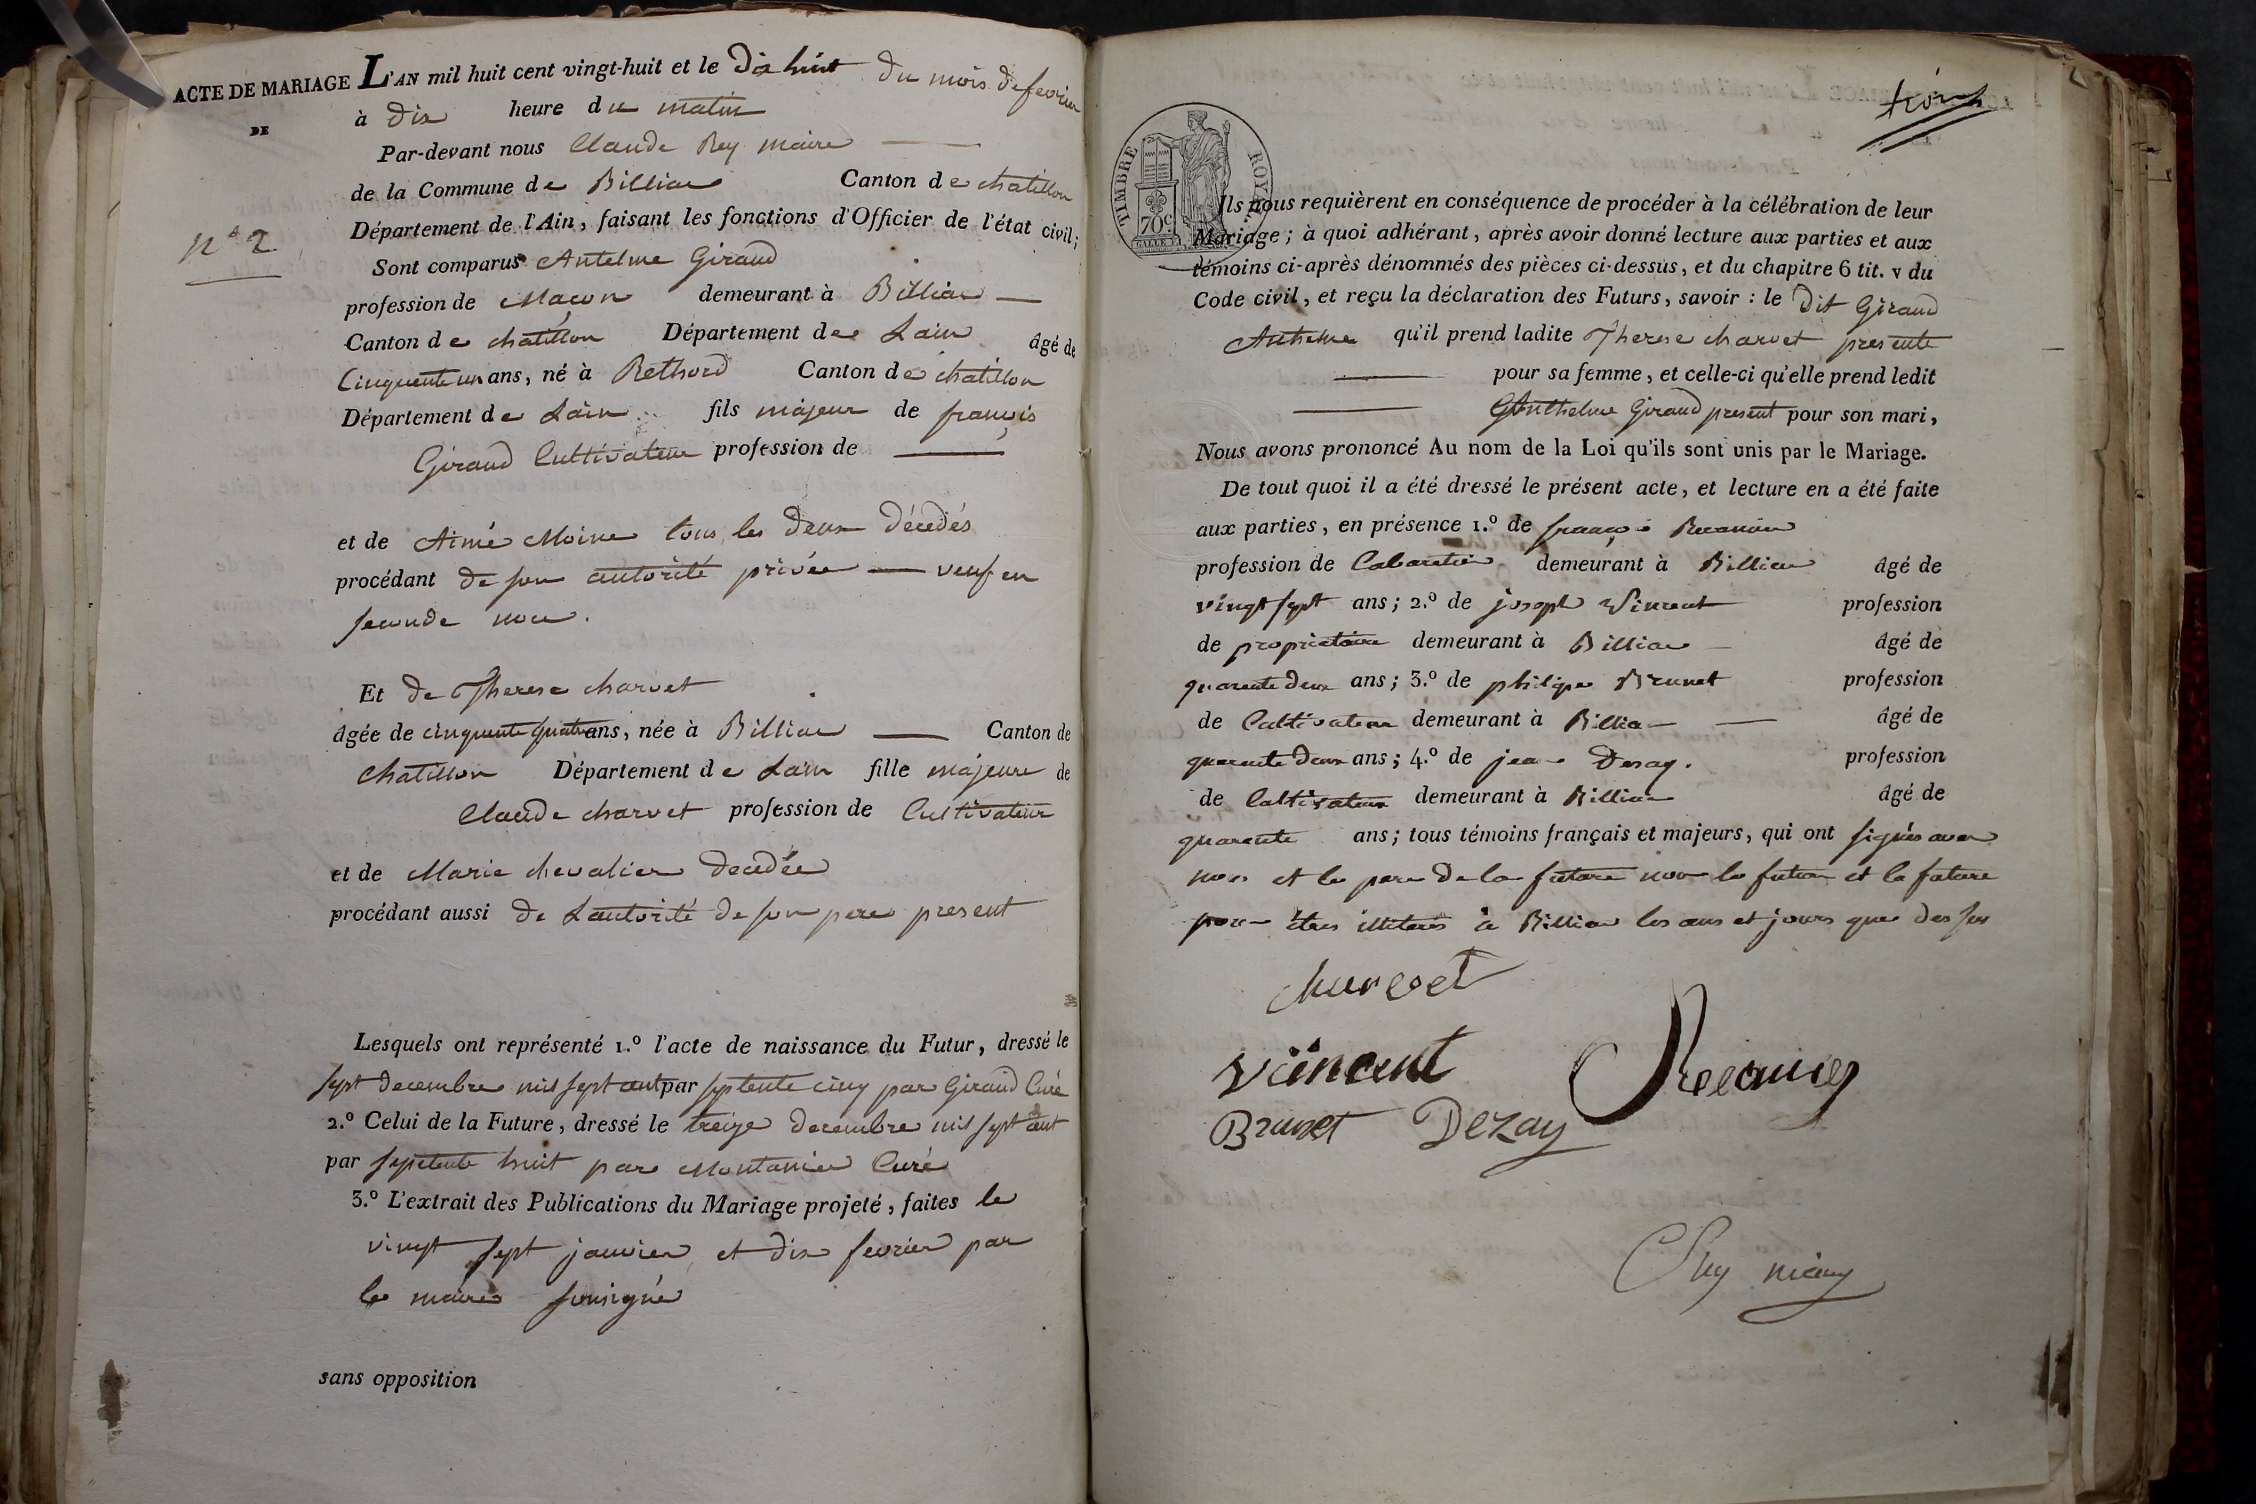 ACTE DE MARIAGE L'AN mil huit cent vingt-huit et le Dix huit du mois de fevrier
DE
à Dix heure du matin
Par-devant nous Claude Rey maire
de la Commune de Billiat Canton de chatillon
Département de l'Ain, faisant les fonctions d'Officier de l'état civil;
n° 2
Sont comparus Antelme Giraud
profession de Maçon demeurant à Billiat
Canton de chatillon Département de Lain âgé de
Cinquente un ans, né à Canton de chatillon
Département de Lain fils majeur de françois
Giraud Cultivateur profession de
et de Aimé Moine tous les deux décédés
procédant de son autorité privée veuf en
seconde noce.
Et de Therese charvet
âgée de cinquente quatre ans, née à Billiat Canton de
chatillon Département de Lain fille majeure de
Claude charvet profession de Cultivateur
et de Marie chevalier decedée
procédant aussi de Lautorité de son pere present
Lesquels ont représenté 1.º l'acte de naissance du Futur, dressé le
sept decembre mil sept cent par septente cinq par Giraud Curé
2.º Celui de la Future, dressé le treize decembre mil sept cent
par septente huit par Montanier Curé
3.º L'extrait des Publications du Mariage projeté, faites le
vingt sept janvier et dix fevrier par
le maire sousigné
sans opposition
TIMBRE ROYAL
70 c.
Ils nous requièrent en conséquence de procéder à la célébration de leur
Mariage; à quoi adhérant, après avoir donné lecture aux parties et aux
témoins ci-après dénommés des pièces ci-dessus, et du chapitre 6 tit. v du
Code civil, et reçu la déclaration des Futurs, savoir : le dit Giraud
Anthelme qu'il prend ladite Therese charvet presente
pour sa femme, et celle-ci qu'elle prend ledit
Anthelme Giraud present pour son mari,
Nous avons prononcé Au nom de la Loi qu'ils sont unis par le Mariage.
De tout quoi il a été dressé le présent acte, et lecture en a été faite
aux parties, en présence 1.º de françois
profession de Cabaretier demeurant à Billiat âgé de
vingt sept ans; 2.º de joseph Vincent profession
de propriétaire demeurant à Billiat âgé de
quarente deux ans; 3.º de philipe Brunet profession
de Cultivateur demeurant à Billiat âgé de
quarente deux ans; 4.º de jean Dezay. profession
de Cultivateur demeurant à Billiat âgé de
quarente ans; tous témoins français et majeurs, qui ont signés avec
nous et le pere de la future non le futur et la future
pour êtres illiterés à Billiat les ans et jours que dessus
Charvet
Vincent
Brunet Dezay